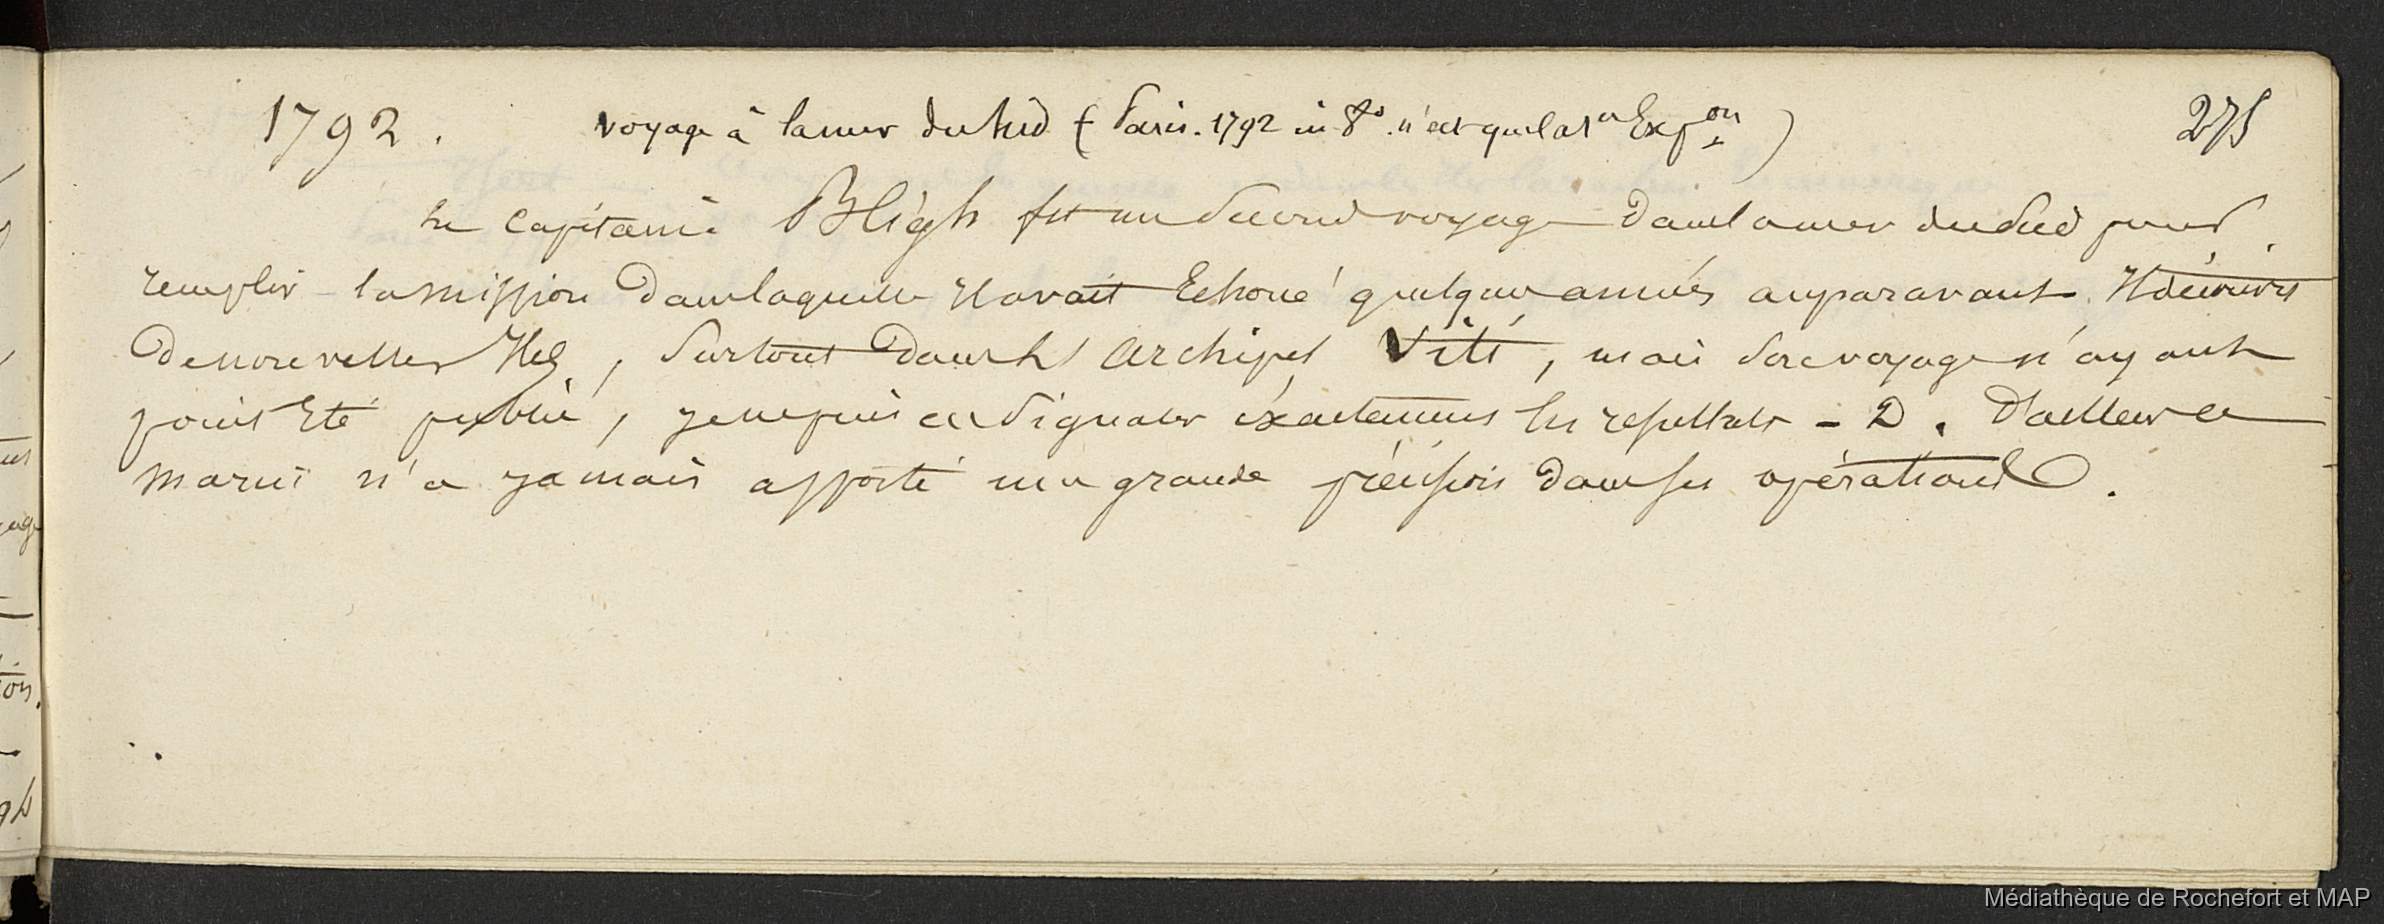 1792. voyage à la mer du Sud (Paris. 1792 in 8° n'est que la 1re Expon) 275
Le capitaine Bligh fit un second voyage dans la mer du Sud pour
remplir la mission dans laquelle il avait Echoué quelques années auparavant. Il découvrit
de nouvelles Iles, surtout dans les archipel Viti, mais son voyage n'ayant
point Eté publié, je ne puis en signaler éxactement les resultats - D. D'ailleurs ce
marin n'a jamais apporté une grande précision dans ses opérations.
Médiathèque de Rochefort et MAP